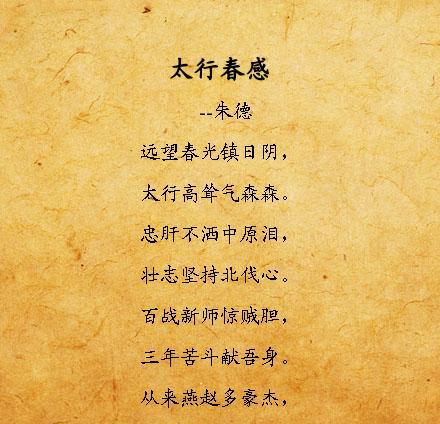 太行春感
--朱德
远望春光镇日阴，
太行高耸气森森。
忠肝不洒中原泪，
壮志坚持北伐心。
百战新师惊贼胆，
三年苦斗献吾身。
从来燕赵多豪杰，